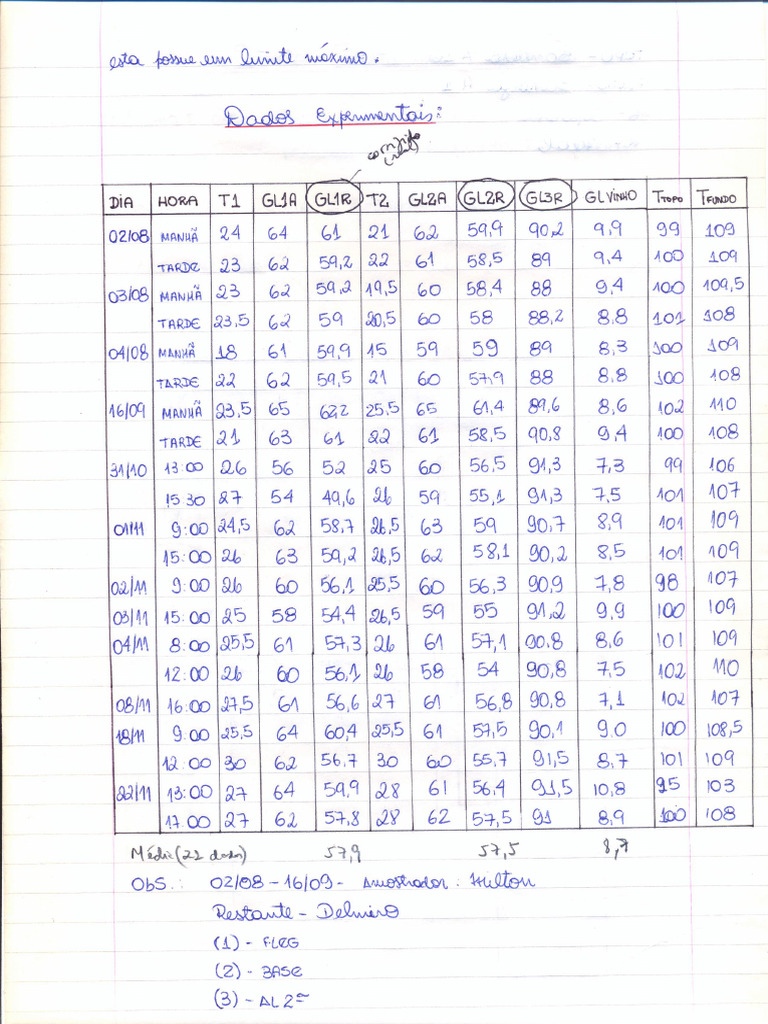 esta possue um limite máximo.
Dados Experimentais:
corrigido
DIA HORA T1 GL1A GL1R T2 GL2A GL2R GL3R GL VINHO TTOPO TFUNDO
02/08 MANHÃ 24 64 61 21 62 59,9 90,2 9,9 99 109
TARDE 23 62 59,2 22 61 58,5 89 9,4 100 109
03/08 MANHÃ 23 62 59,2 19,5 60 58,4 88 9,4 100 109,5
TARDE 23,5 62 59 20,5 60 58 88,2 8,8 101 108
04/08 MANHÃ 18 61 59,9 15 59 59 89 8,3 100 109
TARDE 22 62 59,5 21 60 57,9 88 8,8 100 108
16/09 MANHÃ 23,5 65 62,2 25,5 65 61,4 89,6 8,6 102 110
TARDE 21 63 61 22 61 58,5 90,8 9,4 100 108
31/10 13:00 26 56 52 25 60 56,5 91,3 7,3 99 106
15 30 27 54 49,6 26 59 55,1 91,3 7,5 101 107
01/11 9:00 24,5 62 58,7 26,5 63 59 90,7 8,9 101 109
15:00 26 63 59,2 26,5 62 58,1 90,2 8,5 101 109
02/11 9:00 26 60 56,1 25,5 60 56,3 90,9 7,8 98 107
03/11 15:00 25 58 54,4 26,5 59 55 91,2 9,9 100 109
04/11 8:00 25,5 61 57,3 26 61 57,1 90,8 8,6 101 109
12:00 26 60 56,1 26 58 54 90,8 7,5 102 110
08/11 16:00 27,5 61 56,6 27 61 56,8 90,8 7,1 102 107
18/11 9:00 25,5 64 60,4 25,5 61 57,5 90,1 9.0 100 108,5
12:00 30 62 56,7 30 60 55,7 91,5 8,7 101 109
22/11 13:00 27 64 59,9 28 61 56,4 91,5 10,8 95 103
17.00 27 62 57,8 28 62 57,5 91 8,9 100 108
Média (21 dados) 57,9 57,5 8,7
Obs.: 02/08 - 16/09 - Amostrador: Hulton
Restante - Delmiro
(1) - FLEG
(2) - BASE
(3) - AL 2